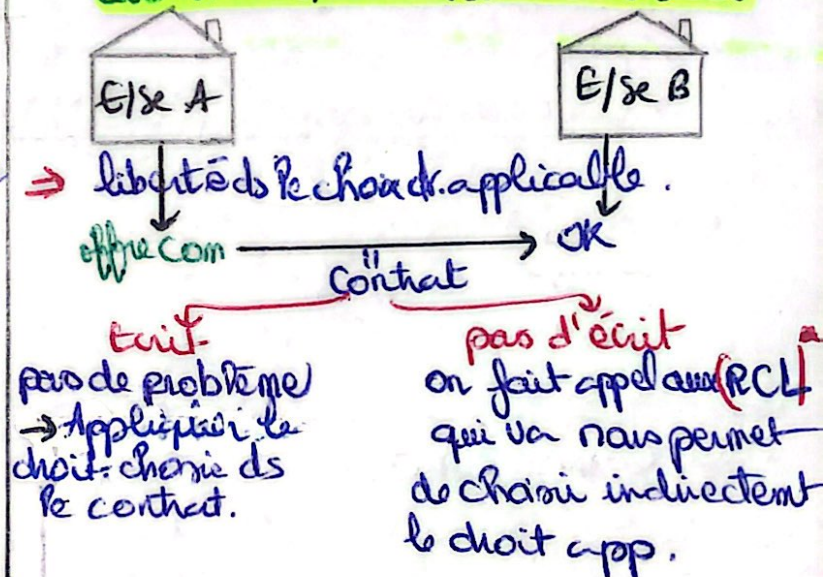 E/se A
E/se B
⇒ liberté ds le choix dr. applicable.
offre Com → OK
Contrat
Ecrit
pas de problème
→ Application le
droit choisie ds
le contrat.
pas d'écrit
on fait appel aux (RCL)
qui va nous permet
de choisir indirectemt
le droit app.